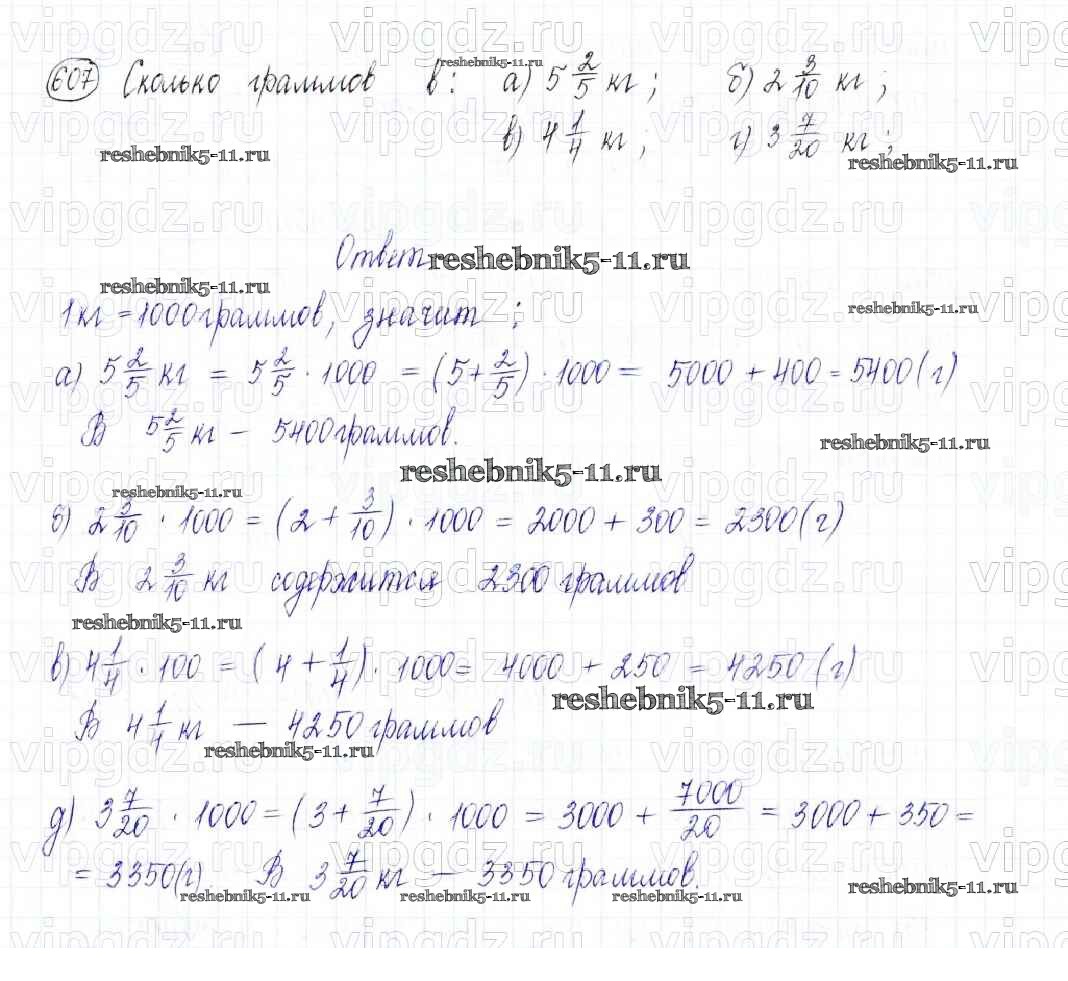 607 Сколько граммов в: а) 5 2/5 кг; б) 2 3/10 кг;
в) 4 1/4 кг; г) 3 7/20 кг;
Ответ
1кг = 1000 граммов, значит:
а) 5 2/5 кг = 5 2/5 · 1000 = (5 + 2/5) · 1000 = 5000 + 400 = 5400 (г)
В 5 2/5 кг — 5400 граммов.
б) 2 3/10 · 1000 = (2 + 3/10) · 1000 = 2000 + 300 = 2300 (г)
В 2 3/10 кг содержится 2300 граммов
в) 4 1/4 · 100 = (4 + 1/4) · 1000 = 4000 + 250 = 4250 (г)
В 4 1/4 кг — 4250 граммов
д) 3 7/20 · 1000 = (3 + 7/20) · 1000 = 3000 + 7000/20 = 3000 + 350 =
= 3350 (г) В 3 7/20 кг — 3350 граммов.
reshebnik5-11.ru
vipgdz.ru